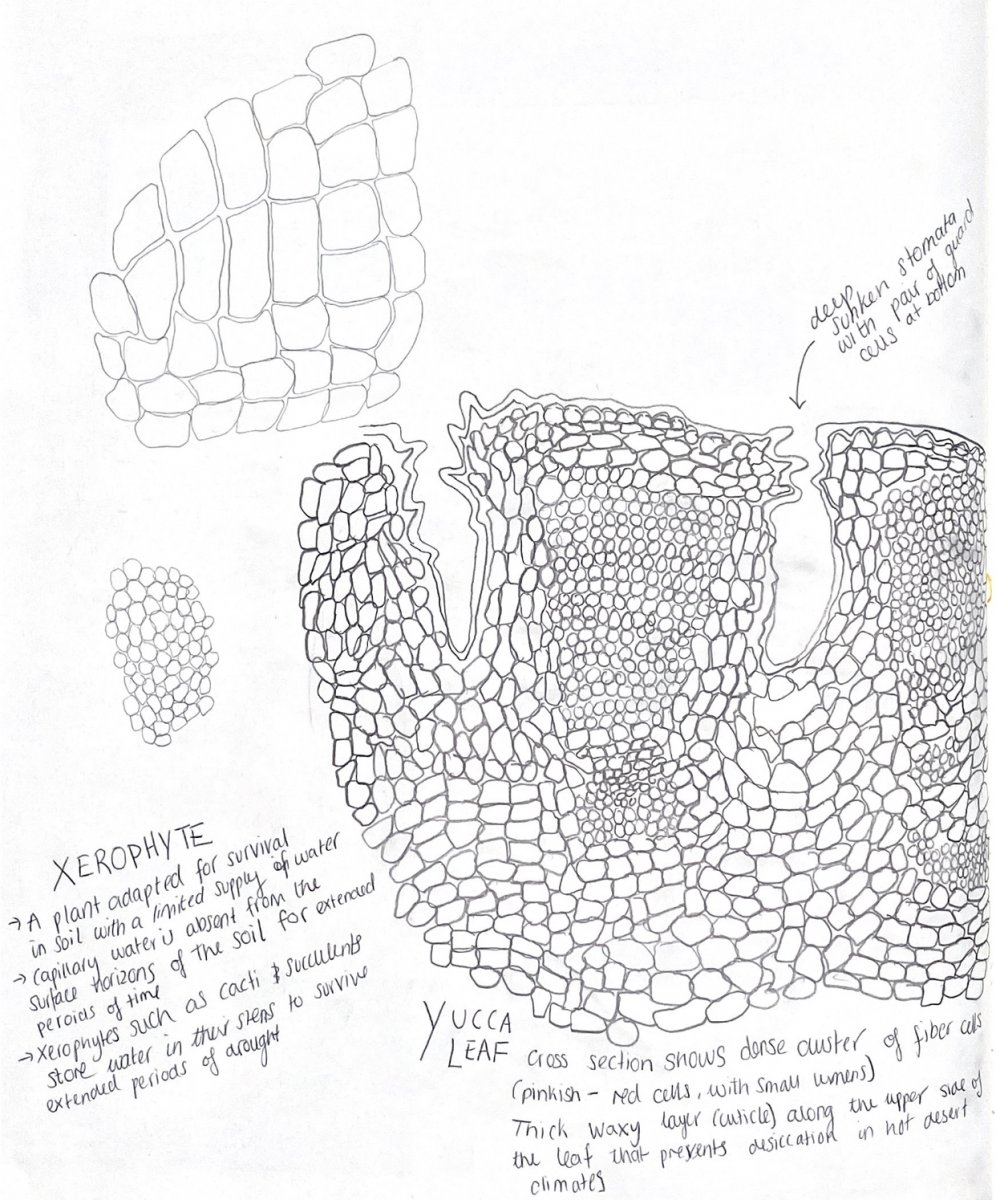 deep
sunken stomata
with pair of guard
cells at bottom
XEROPHYTE
→ A plant adapted for survival
in soil with a limited supply of water
→ Capillary water is absent from the
surface horizons of the soil for extended
peroids of time
→ Xerophytes such as cacti & succulents
store water in their stems to survive
extended periods of drought
YUCCA
LEAF
Cross section shows dense cluster of fiber cells
(pinkish - red cells, with small lumens)
Thick waxy layer (cuticle) along the upper side of
the leaf that prevents desiccation in hot desert
climates